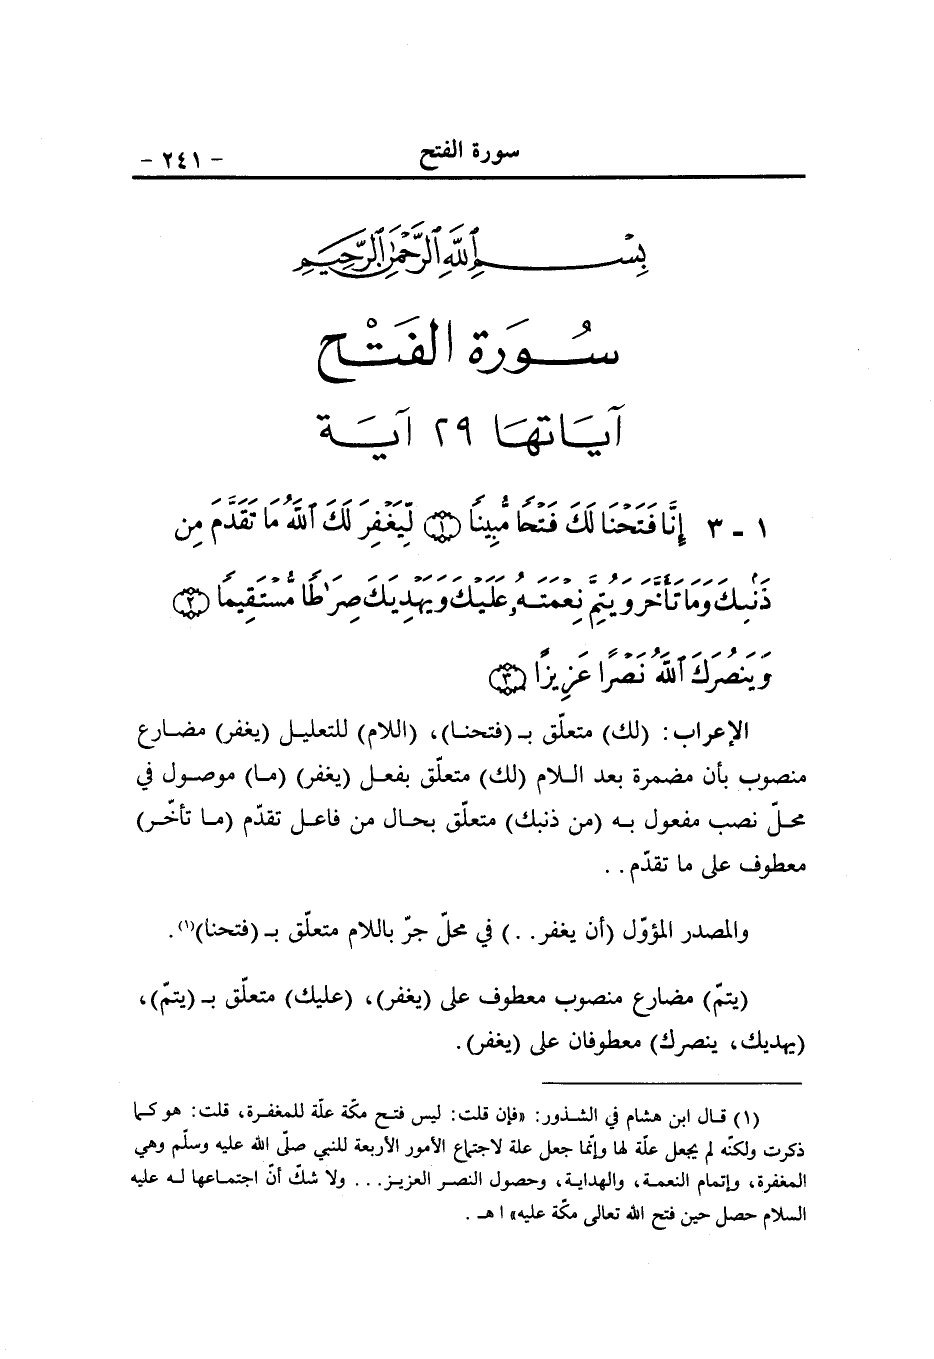 سورة الفتح - ٢٤١ -
بِسْمِ ٱللَّهِ ٱلرَّحْمَٰنِ ٱلرَّحِيمِ
سُورَة الفَتْح
آيَاتهَا ٢٩ آيَة
١ - ٣ إِنَّا فَتَحْنَا لَكَ فَتْحًا مُّبِينًا ﴿١﴾ لِّيَغْفِرَ لَكَ ٱللَّهُ مَا تَقَدَّمَ مِن
ذَنۢبِكَ وَمَا تَأَخَّرَ وَيُتِمَّ نِعْمَتَهُۥ عَلَيْكَ وَيَهْدِيَكَ صِرَٰطًا مُّسْتَقِيمًا ﴿٢﴾
وَيَنصُرَكَ ٱللَّهُ نَصْرًا عَزِيزًا ﴿٣﴾
الإعراب: (لك) متعلّق بـ (فتحنا)، (اللام) للتعليل (يغفر) مضارع
منصوب بأن مضمرة بعد اللام (لك) متعلّق بفعل (يغفر) (ما) موصول في
محلّ نصب مفعول به (من ذنبك) متعلّق بحال من فاعل تقدّم (ما تأخّر)
معطوف على ما تقدّم..
والمصدر المؤوّل (أن يغفر..) في محلّ جرّ باللام متعلّق بـ (فتحنا)(١).
(يتمّ) مضارع منصوب معطوف على (يغفر)، (عليك) متعلّق بـ (يتمّ)،
(يهديك، ينصرك) معطوفان على (يغفر).
(١) قال ابن هشام في الشذور: «فإن قلت: ليس فتح مكّة علّة للمغفرة، قلت: هو كما
ذكرت ولكنّه لم يجعل علّة لها وإنّما جعل علة لاجتماع الأمور الأربعة للنبي صلّى الله عليه وسلّم وهي
المغفرة، وإتمام النعمة، والهداية، وحصول النصر العزيز... ولا شكّ أنّ اجتماعها له عليه
السلام حصل حين فتح الله تعالى مكّة عليه» ا هـ.